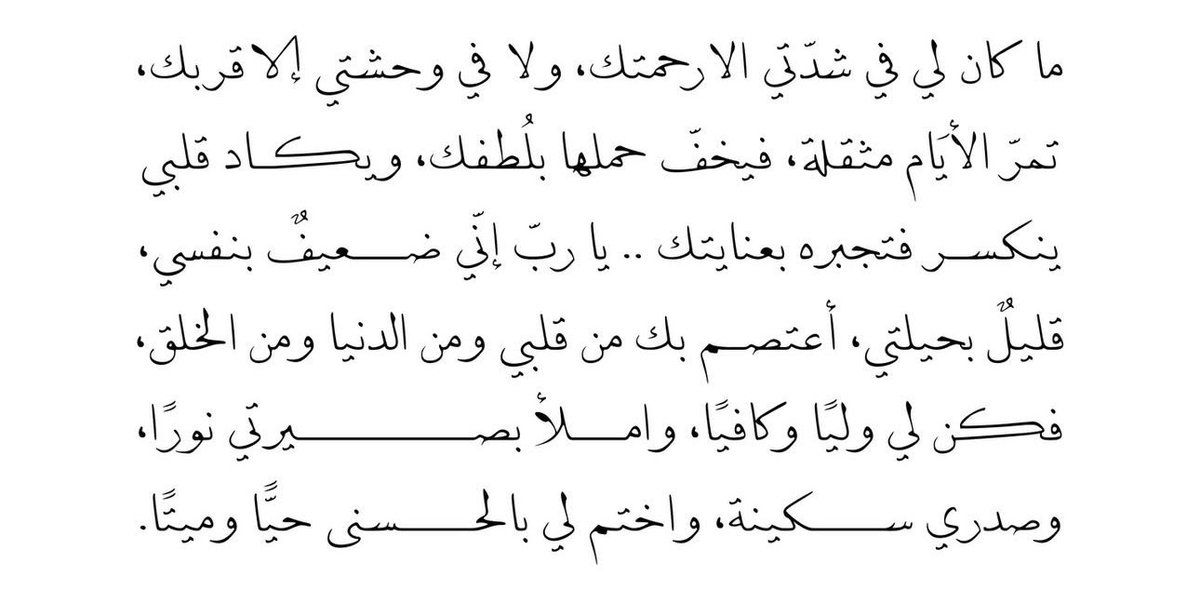 ما كان لي في شدّتي الا رحمتك، ولا في وحشتي إلا قربك،
تمرّ الأيَام مثقلة، فيخفّ حملها بلُطفك، ويكاد قلبي
ينكسر فتجبره بعنايتك .. يا ربّ إنّي ضعيفٌ بنفسي،
قليلٌ بحيلتي، أعتصم بك من قلبي ومن الدنيا ومن الخلق،
فكن لي وليًا وكافيًا، واملأ بصيرتي نورًا،
وصدري سكينة، واختم لي بالحسنى حيًّا وميتًا.